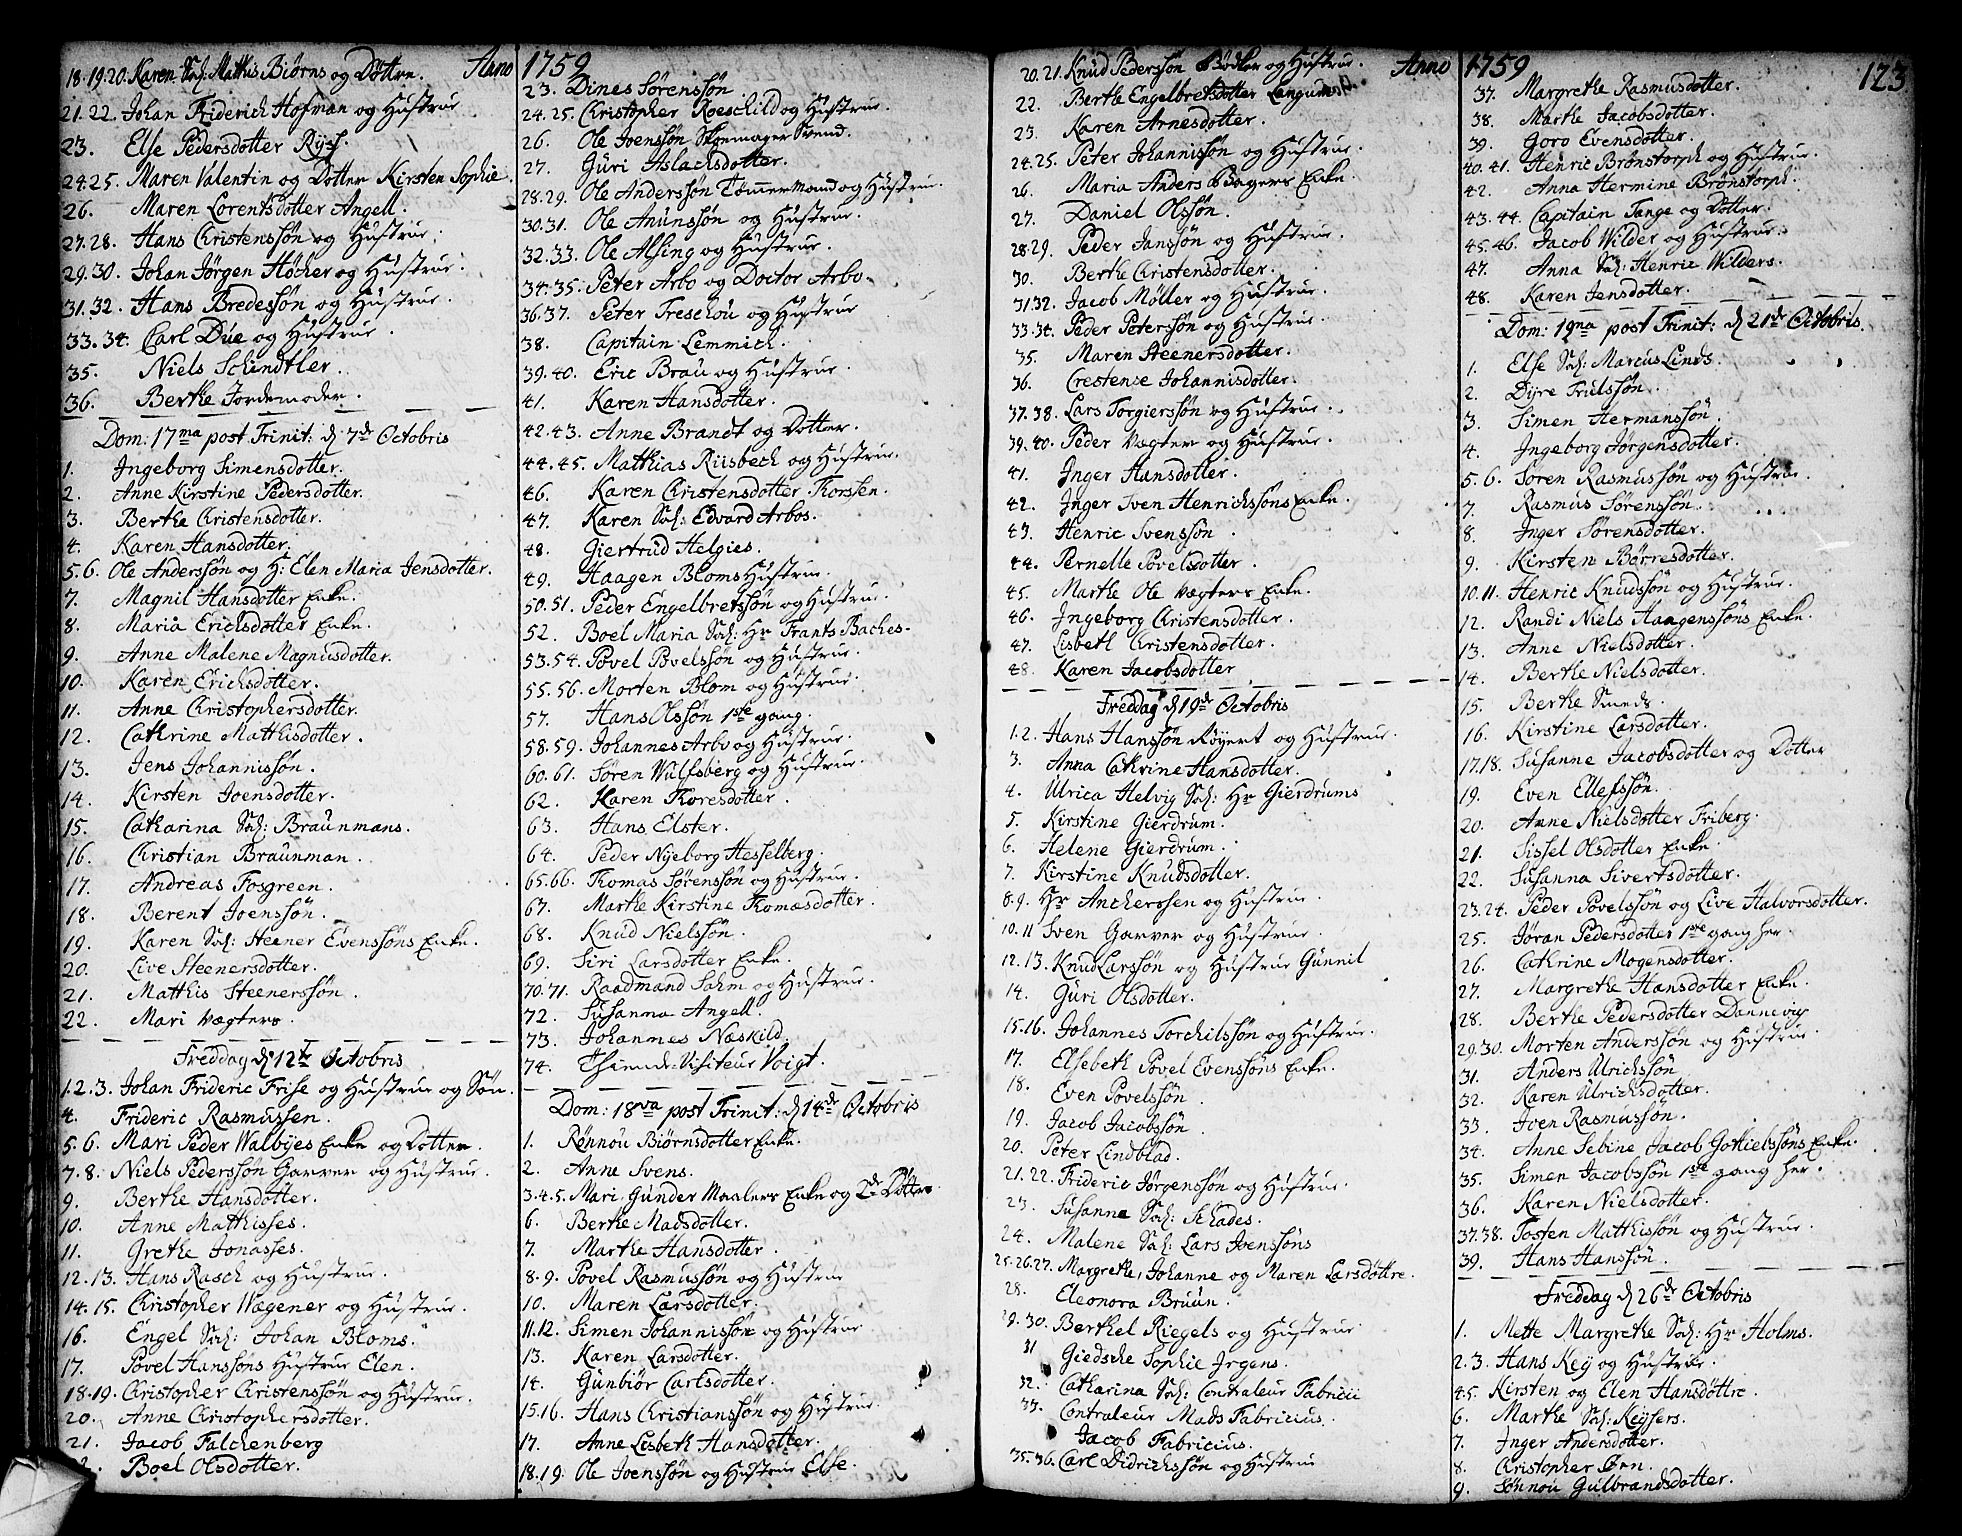 18.19.20. Karen Sal: Mathis Biørns og Døttre. Anno
21.22. Johan Friderich Hofman og Hustrue
23. Else Pedersdotter Rÿs.
24.25. Maren Valentin og Dotter Kirsten Sophie.
26. Maren Lorentsdotter Angell.
27.28. Hans Christenssøn og Hustrue.
29.30. Johan Jørgen Høcker og Hustrue.
31.32. Hans Bredessøn og Hustrue.
33.34. Carl Due og Hustrue.
35. Niels Schindtler.
36. Berthe Jordemoder.
Dom: 17ma post Trinit: d 7de Octobris
1. Ingeborg Simensdotter.
2. Anne Kirstine Pedersdotter.
3. Berthe Christensdotter.
4. Karen Hansdotter.
5.6. Ole Anderssøn og H: Elen Maria Jensdotter.
7. Magnil Hansdotter Enke.
8. Maria Erichsdotter Enke.
9. Anne Malene Magnusdotter.
10. Karen Erichsdotter.
11. Anne Christophersdotter.
12. Cathrine Matthisdotter.
13. Jens Johannissøn.
14. Kirsten Joensdotter.
15. Catharina Sal: Braunmans.
16. Christian Braunman.
17. Andreas Fosgreen.
18. Berent Joenssøn.
19. Karen Sal: Steener Evenssøns Enke.
20. Live Steenersdotter.
21. Matthis Steenerssøn.
22. Mari Vægters.
Freddag d 12te Octobris
1.2.3. Johan Frideric Frise og Hustrue og Søn.
4. Frideric Rasmussen.
5.6. Mari Peder Walbyes Enke og Dotter.
7.8. Niels Pederssøn Garver og Hustrue.
9. Berthe Hansdotter.
10. Anne Matthisses.
11. Grethe Jonasses.
12.13. Hans Rasch og Hustrue.
14.15. Christopher Wægener og Hustrue.
16. Engel Sal: Johan Bloms.
17. Povel Hanssøns Hustrue Elen.
18.19. Christopher Christenssøn og Hustrue.
20. Anne Christophersdotter.
21. Jacob Falchenberg
22. Boel Olsdotter.
1759
23. Dines Sørenssøn
24.25. Christopher Roeschild og Hustrue.
26. Ole Joenssøn Skoemager Svend.
27. Guri Aslachsdotter.
28.29. Ole Anderssøn Tømmermand og Hustru.
30.31. Ole Anunssøn og Hustrue.
32.33. Ole Alsing og Hustrue.
34.35. Peter Arbo og Doctor Arbo.
36.37. Peter Treschou og Hustrue
38. Capitain Lemmich.
39.40. Eric Brau og Hustrue.
41. Karen Hansdotter.
42.43. Anne Brandt og Dotter.
44.45. Matthias Riisbech og Hustrue.
46. Karen Christensdotter Thorssen.
47. Karen Sal: Edvard Arbos.
48. Giertrud Helgies.
49. Haagen Bloms Hustrue.
50.51. Peder Engelbretssøn og Hustrue.
52. Boel Maria Sal: Hr Frants Baches.
53.54. Povel Povelssøn og Hustrue.
55.56. Morten Blom og Hustrue.
57. Hans Olssøn 1ste gang.
58.59. Johannes Arbo og Hustrue.
60.61. Søren Wulfsberg og Hustrue.
62. Karen Thoresdotter.
63. Hans Elster.
64. Peder Nyeborg Hesselberg.
65.66. Thomas Sørenssøn og Hustrue.
67. Marthe Kirstine Thomæsdotter.
68. Knud Nielssøn.
69. Siri Larsdotter Enke.
70.71. Raadmand Sahm og Hustrue.
72. Susanna Angell.
73. Johannes Næskild.
74. Visiteur Voigt.
Dom: 18va post Trinit: d 14de Octobris
1. Rønnou Biørnsdotter Enke.
2. Anne Svens.
3.4.5. Mari Gunder Maalers Enke og 2de Døttre
6. Berthe Madsdotter.
7. Marthe Hansdotter.
8.9. Povel Rasmussøn og Hustrue
10. Maren Larsdotter.
11.12. Simen Johannissøn og Hustrue
13. Karen Larsdotter.
14. Gunbiør Carlsdotter.
15.16. Hans Christianssøn og Hustrue.
17. Anne Lisbeth Hansdotter.
18.19. Ole Joenssøn og Hustrue Else.
20.21. Knud Pederssøn Bødker og Hustrue. Anno
22. Berthe Engelbretsdotter
23. Karen Arnesdotter.
24.25. Peter Johannissøn og Hustrue.
26. Maria Anders Bagers Enke.
27. Daniel Olssøn.
28.29. Peder Janssøn og Hustrue.
30. Berthe Christensdotter.
31.32. Jacob Møller og Hustrue.
33.34. Peder Peterssøn og Hustrue.
35. Maren Steenersdotter.
36. Crestense Johannisdotter.
37.38. Lars Torgierssøn og Hustrue.
39.40. Peder Vægter og Hustrue.
41. Inger Hansdotter.
42. Inger Iven Henrichssøns Enke.
43. Henric Svenssøn.
44. Pernelle Povelsdotter.
45. Marthe Ole Vægters Enke.
46. Ingeborg Christensdotter.
47. Lisbeth Christensdotter.
48. Karen Jacobsdotter
Freddag d 19de Octobris
1.2. Hans Hanssøn Røyert og Hustrue.
3. Anna Cathrine Hansdotter.
4. Ulrica Helvig Sal: Hr Gierdrums
5. Kirstine Gierdrum.
6. Helene Gierdrum.
7. Kirstine Knudsdotter.
8.9. Hr Ancherssen og Hustrue.
10.11 Sven Garver og Hustrue.
12.13. Knud Larssøn og Hustrue Gunnil
14. Guri Olsdotter.
15.16. Johannes Torchilssøn og Hustrue.
17. Elsebeth Povel Evenssøns Enke.
18. Even Povelssøn.
19. Jacob Jacobssøn.
20. Peter Lindblad.
21.22. Frideric Jørgenssøn og Hustrue.
23. Susanne Sal: Schades.
24. Malene Sal: Lars Joenssøns
25.26.27. Margrethe, Johanne og Maren Larsdøttre.
28. Eleonora Bruun.
29.30. Berthel Riegels og Hustrue.
31 Giedsche Sophie Irgens.
32. Catharina Sal: Contraleur Fabricii
33. Contraleur Mads Fabricius.
Jacob Fabricius.
35.36. Carl Didrichssøn og Hustrue
1759 123
37. Margrethe Rasmusdotter.
38. Marthe Jacobsdotter.
39. Goro Evensdotter.
40.41. Henric Brønstorph og Hustrue.
42. Anna Hermine Brønstorph.
43.44. Capitain Tange og Dotter.
45.46. Jacob Wilder og Hustrue.
47. Anna Sal: Henric Wilders.
48. Karen Jensdotter.
Dom: 19na post Trinit: d 21de Octobris.
1. Else Sal: Marcus Linds.
2. Dyre Trulssøn.
3. Simen Hermanssøn.
4. Ingeborg Jørgensdotter.
5.6. Søren Rasmussøn og Hustrue.
7. Rasmus Sørenssøn.
8. Inger Sørensdotter.
9. Kirsten Børresdotter.
10.11. Henric Knudssøn og Hustrue.
12. Randi Niels Haagenssøns Enke.
13. Anne Nielsdotter.
14. Berthe Nielsdotter.
15. Berthe Smeds.
16. Kirstine Larsdotter.
17.18. Susanne Jacobsdotter og Dotter
19. Even Ellefssøn.
20. Anne Nielsdotter Friberg.
21. Sissel Olsdotter Enke.
22. Susanna Sivertsdotter.
23.24. Peder Povelssøn og Live Halvorsdotter.
25. Jøran Pedersdotter 1ste gang her.
26. Cathrine Mogensdotter.
27. Margrethe Hansdotter Enke.
28. Berthe Pedersdotter Dannevig
29.30. Morten Anderssøn og Hustrue
31. Anders Ulrichssøn.
32. Karen Ulrichsdotter.
33. Joen Rasmussøn.
34. Anne Sebine Jacob Gottlielssøns Enke.
35. Simen Jacobssøn 1ste gang her.
36. Karen Nielsdotter.
37.38. Tosten Matthissøn og Hustrue.
39. Hans Hanssøn.
Freddag d 26de Octobris
1. Mette Margrethe Sal: Hr Holms.
2.3. Hans Key og Hustrue.
4.5. Kirsten og Elen Hansdøttre
6. Marthe Sal: Keysers.
7. Inger Andersdotter.
8. Christopher Ørn.
9. Sønnou Gulbrandsdotter.